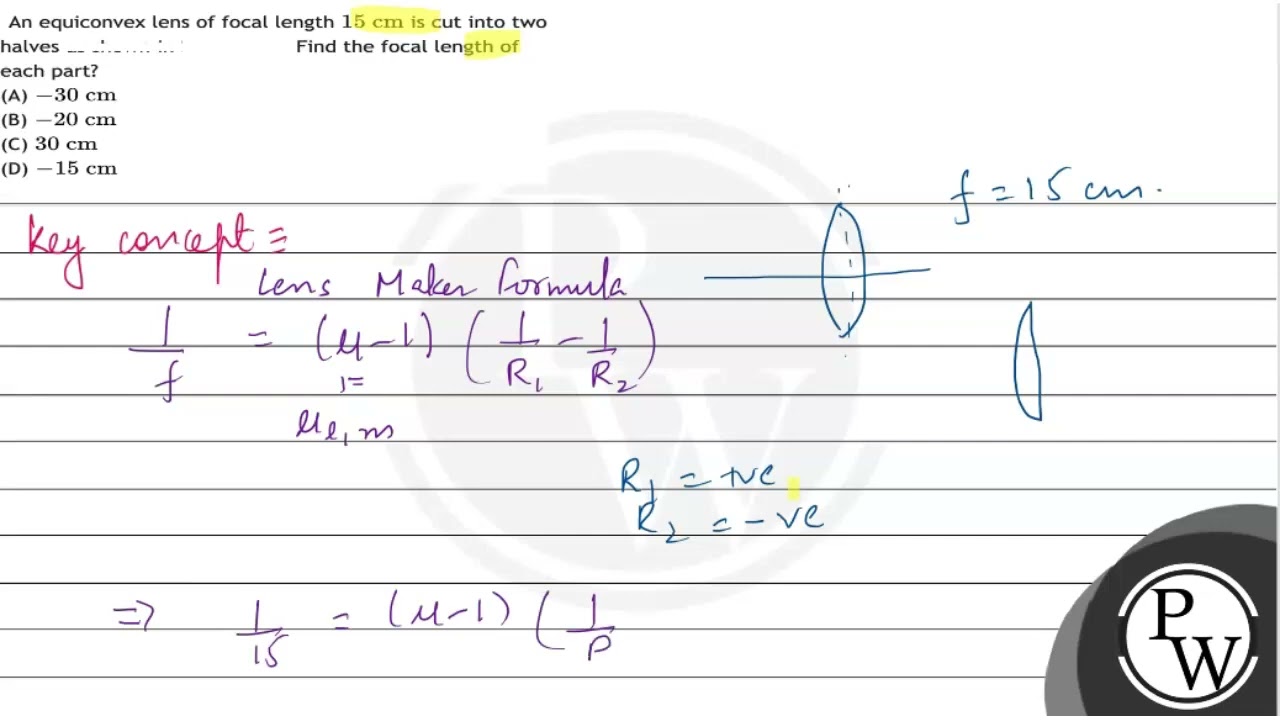 An equiconvex lens of focal length 15 cm is cut into two
halves Find the focal length of
each part?
(A) −30 cm
(B) −20 cm
(C) 30 cm
(D) −15 cm
f = 15 cm.
Key concept =
Lens Maker formula
1/f = (μ-1) (1/R₁ - 1/R₂)
μl,m
R₁ = +ve
R₂ = -ve
⇒ 1/15 = (μ-1) (1/R
P
W